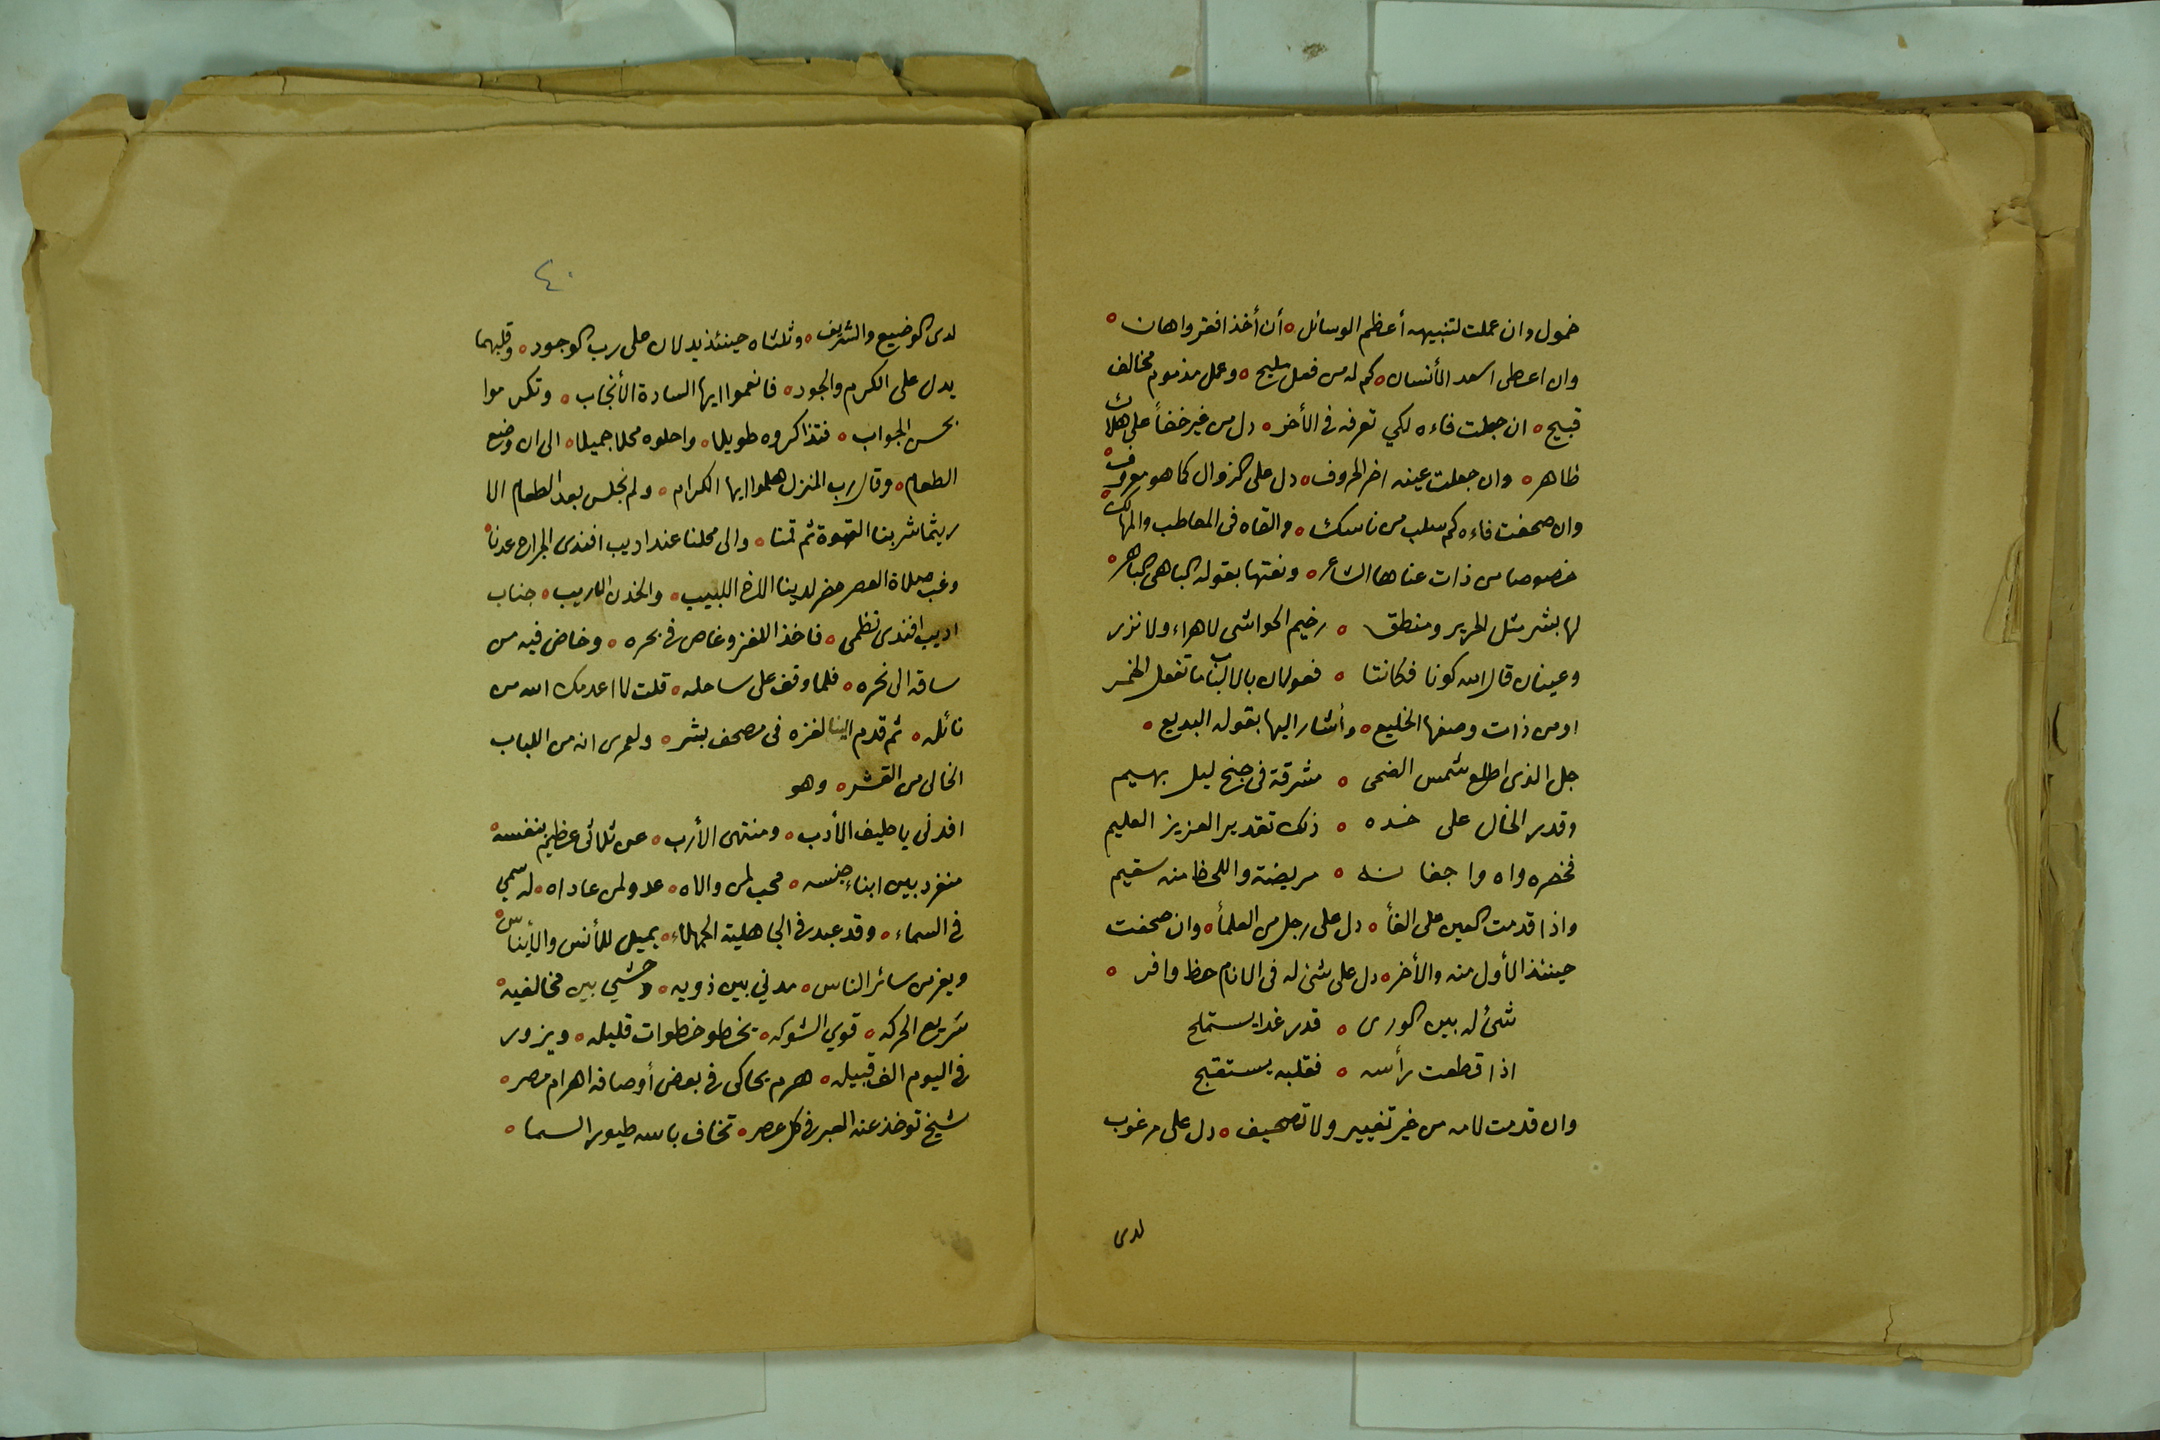 خمول وان عملت لتنبيهه أعظم الوسائل ٥ أن أخذ افقر واهان ٥
وان اعطى اسعد الأنسان ٥ كم له من فعل مليح ٥ وعمل مذموم مخالف
قبيح ٥ ان جعلت فاءه لكي تعرفه في الأخر ٥ دل من غير خفاً على هلاك
ظاهر ٥ وان جعلت عينه اخر الحروف ٥ دل على الزوال كما هو معروف ٥
وان صحفت فاءه كم سلب من ناسك ٥ والقاه في المعاطب والمهالك ٥
خصوصا من ذات عناها الشاعر ٥ ونعتها بقوله الباهي الباهر ٥
لها بشر مثل الحرير ومنطق ٥ رخيم الحواشي لا هراء ولا نزر
وعينان قال الله كونا فكانتا ٥ فعولان بالالباب ما تفعل الخمر
او من ذات وصفها الخليع ٥ وأشار اليها بقوله البديع ٥
جل الذي اطلع شمس الضحى ٥ مشرقة في جنح ليل بهيم
وقدر الخال على خده ٥ ذلك تقدير العزيز العليم
فخصره واه واجفانه ٥ مريضة واللحظ منه سقيم
واذا قدمت العين على الفأ ٥ دل على رجل من العلمأ ٥ وان صحفت
حينئذ الأول منه والأخر ٥ دل على شئ له في الانام حظ وافر ٥
شئ له بين الورى ٥ قدر غدا يستملح
اذا قطعت رأسه ٥ فقلبه يستقبح
وان قدمت لامه من غير تغيير ولا تصحيف ٥ دل على مرغوب
لدى
٤٠
لدى الوضيع والشريف ٥ وثلثاه حينئذ يدلان على رب الوجود ٥ وقلبهما
يدل على الكرم والجود ٥ فانعموا ايها السادة الأنجاب ٥ وتكرموا
بحسن الجواب ٥ فتذاكروه طويلا ٥ واحلوه محلا جميلا ٥ الى ان وضع
الطعام ٥ وقال رب المنزل هلموا ايها الكرام ٥ ولم نجلس بعد الطعام الا
ريثما شربنا القهوة ثم قمنا ٥ والى محلنا عند اديب افندي الجراح عدنا ٥
وغب صلاة العصر حضر لدينا الاخ اللبيب ٥ والخدن الاريب ٥ جناب
اديب افندي نظمي ٥ فاخذ اللغز وغاص في بحره ٥ وخاض فيه من
ساقه الى نحره ٥ فلما وقف على ساحله ٥ قلت لا اعدمك الله من
نائله ٥ ثم قدم الينا لغزه في مصحف بشر ٥ ولعمري انه من اللباب
الخالي من القشر ٥ وهو
افدني يا حليف الأدب ٥ ومنتهى الأرب ٥ عن ثلاثي عظيم بنفسه ٥
منفرد بين ابناء جنسه ٥ محب لمن والاه ٥ عدو لمن عاداه ٥ له سمي
في السماء ٥ وقد عبد في الجاهلية الجهلاء ٥ يميل للأنس والأيناس ٥
ويفر من سائر الناس ٥ مدني بين ذويه ٥ وحشي بين مخالفيه ٥
سريع الحركه ٥ قوي الشوكه ٥ يخطو خطوات قليله ٥ ويزور
في اليوم الف قبيله ٥ هرم يحاكي في بعض أوصافه اهرام مصر ٥
شيخ توخذ عنه العبر في كل عصر ٥ تخاف باسه طيور السما ٥